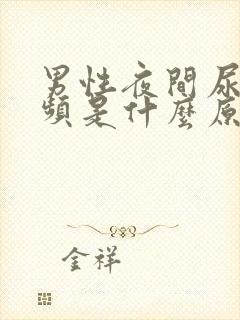 男性夜間尿
頻是什麼原
金祥